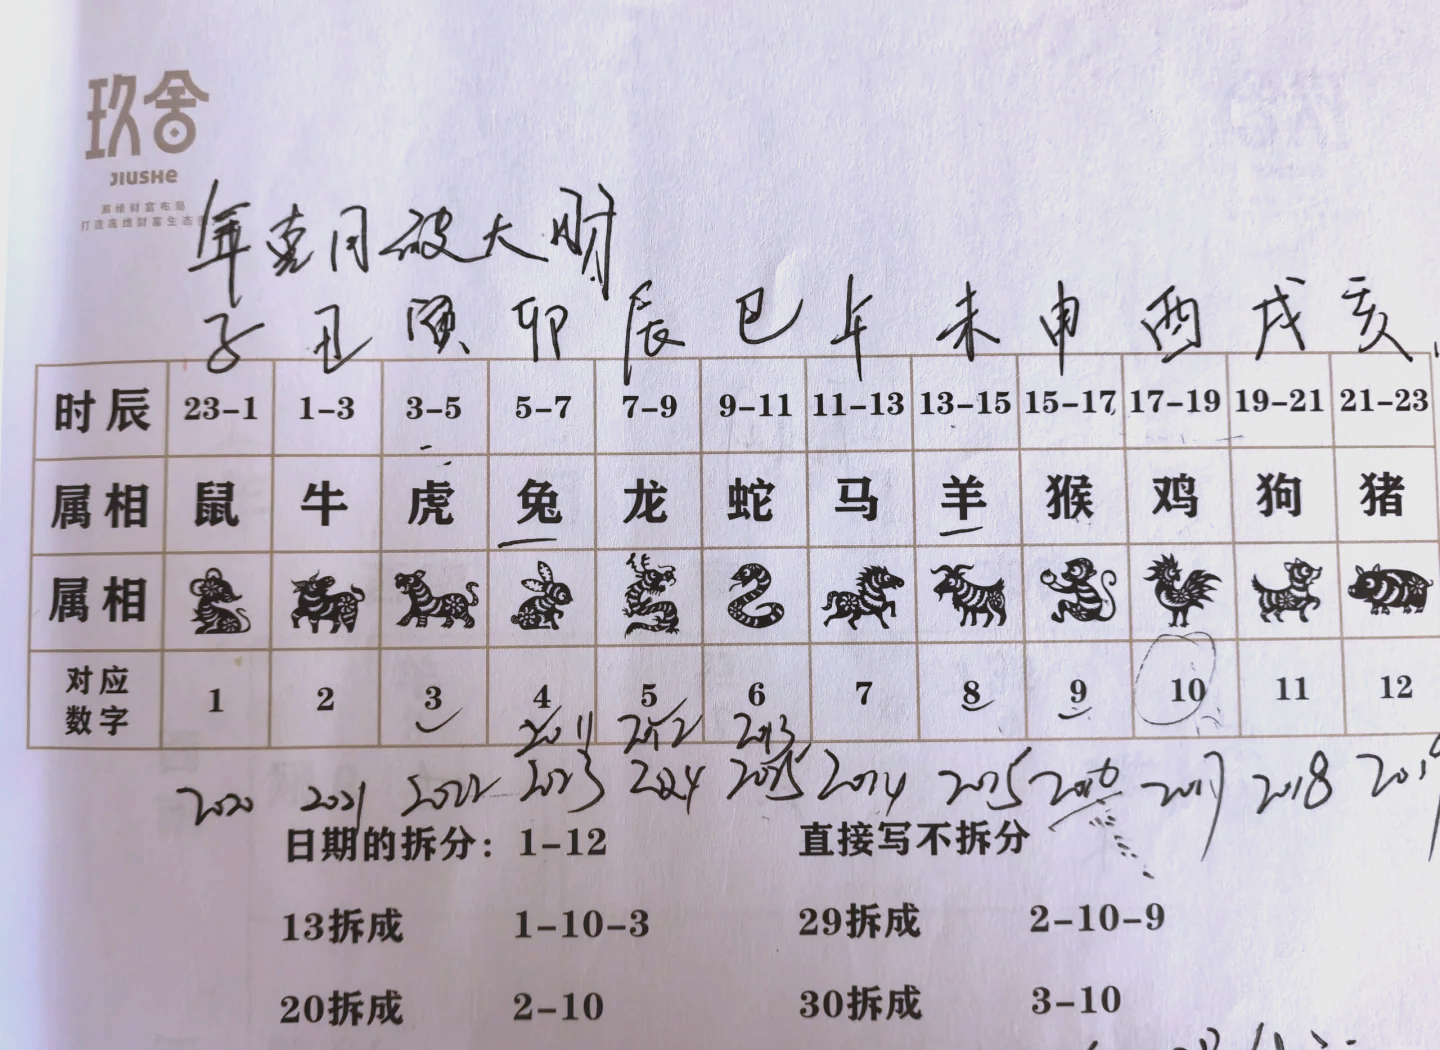 玖舍
JIUSHE
高维财富布局
打造高维财富生态
年克月破大财
子 丑 寅 卯 辰 巳 午 未 申 酉 戌 亥
时辰 23-1 1-3 3-5 5-7 7-9 9-11 11-13 13-15 15-17 17-19 19-21 21-23
属相 鼠 牛 虎 兔 龙 蛇 马 羊 猴 鸡 狗 猪
属相
对应数字 1 2 3 4 5 6 7 8 9 10 11 12
2011 2012 2013
2020 2021 2022 2023 2024 2025 2014 2015 2016 2017 2018 2019
日期的拆分: 1-12 直接写不拆分
13拆成 1-10-3 29拆成 2-10-9
20拆成 2-10 30拆成 3-10